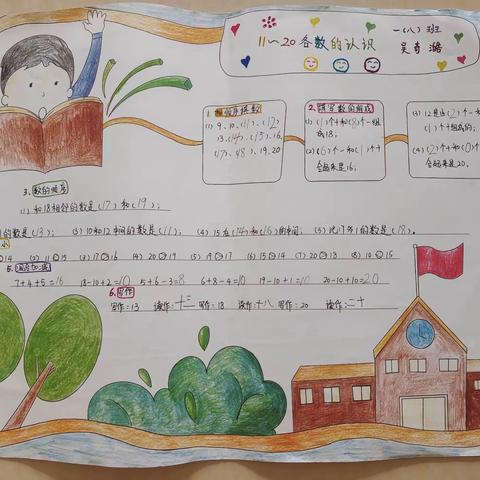 11～20各数的认识
一(八)班
吴奇潞
1.按顺序填数
(1) 9、10、(11)、(12)
13、(14)、(15)、16、
(17)、(18)、19、20
2.填写数的组成
(1) (1)个十和(8)个一组
成18；
(2) (6)个一和(1)个十
合起来是16；
(3) 12是由(2)个一和
(1)个十组成的；
(4) (2)个十和(0)个
合起来是20。
3、数的顺序
(1) 和18相邻的数是(17)和(19)；
的数是(13)； (3) 10和12中间的数是(11)； (4) 15在(14)和(16)的中间； (5) 比17多1的数是(18)。
小
14 (2) 11 15 (3) 17 16 (4) 20 19 (5) 19 17 (6) 15 14 (7) 20 19 (8) 10 15
5、
7+4+5=16 18-10+2=10 5+6-3=8 6+8-4=10 19-10+1=10 20-10+10=20
6、写作
写作：13 读作：十三 写作：18 读作：十八 写作：20 读作：二十